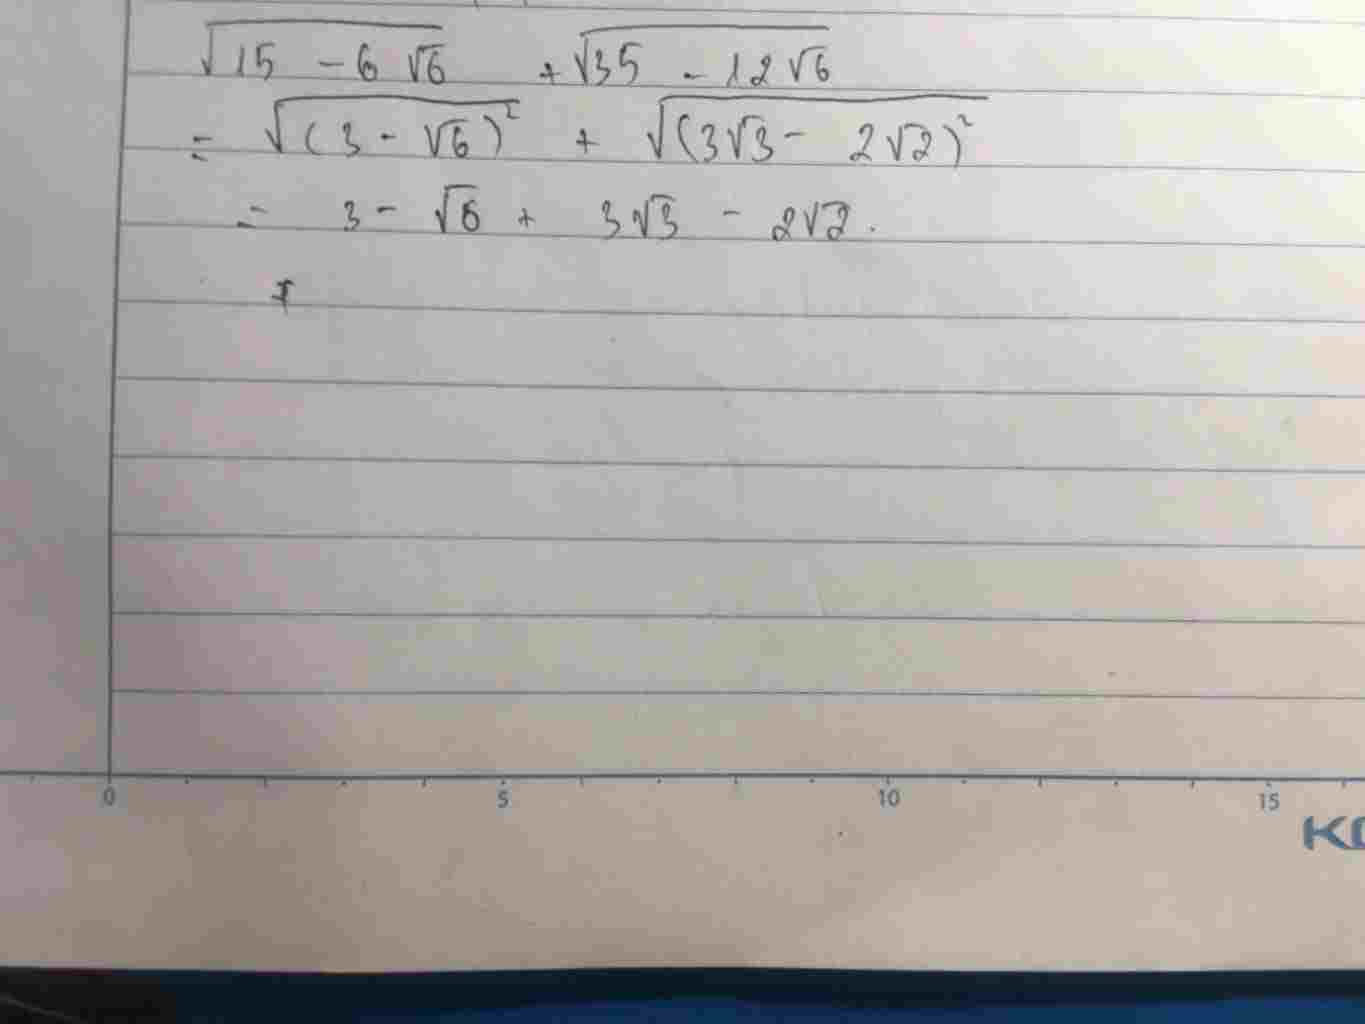 √(15 - 6√6) + √(35 - 12√6)
= √((3 - √6)²) + √((3√3 - 2√2)²)
= 3 - √6 + 3√3 - 2√2.
0 5 10 15